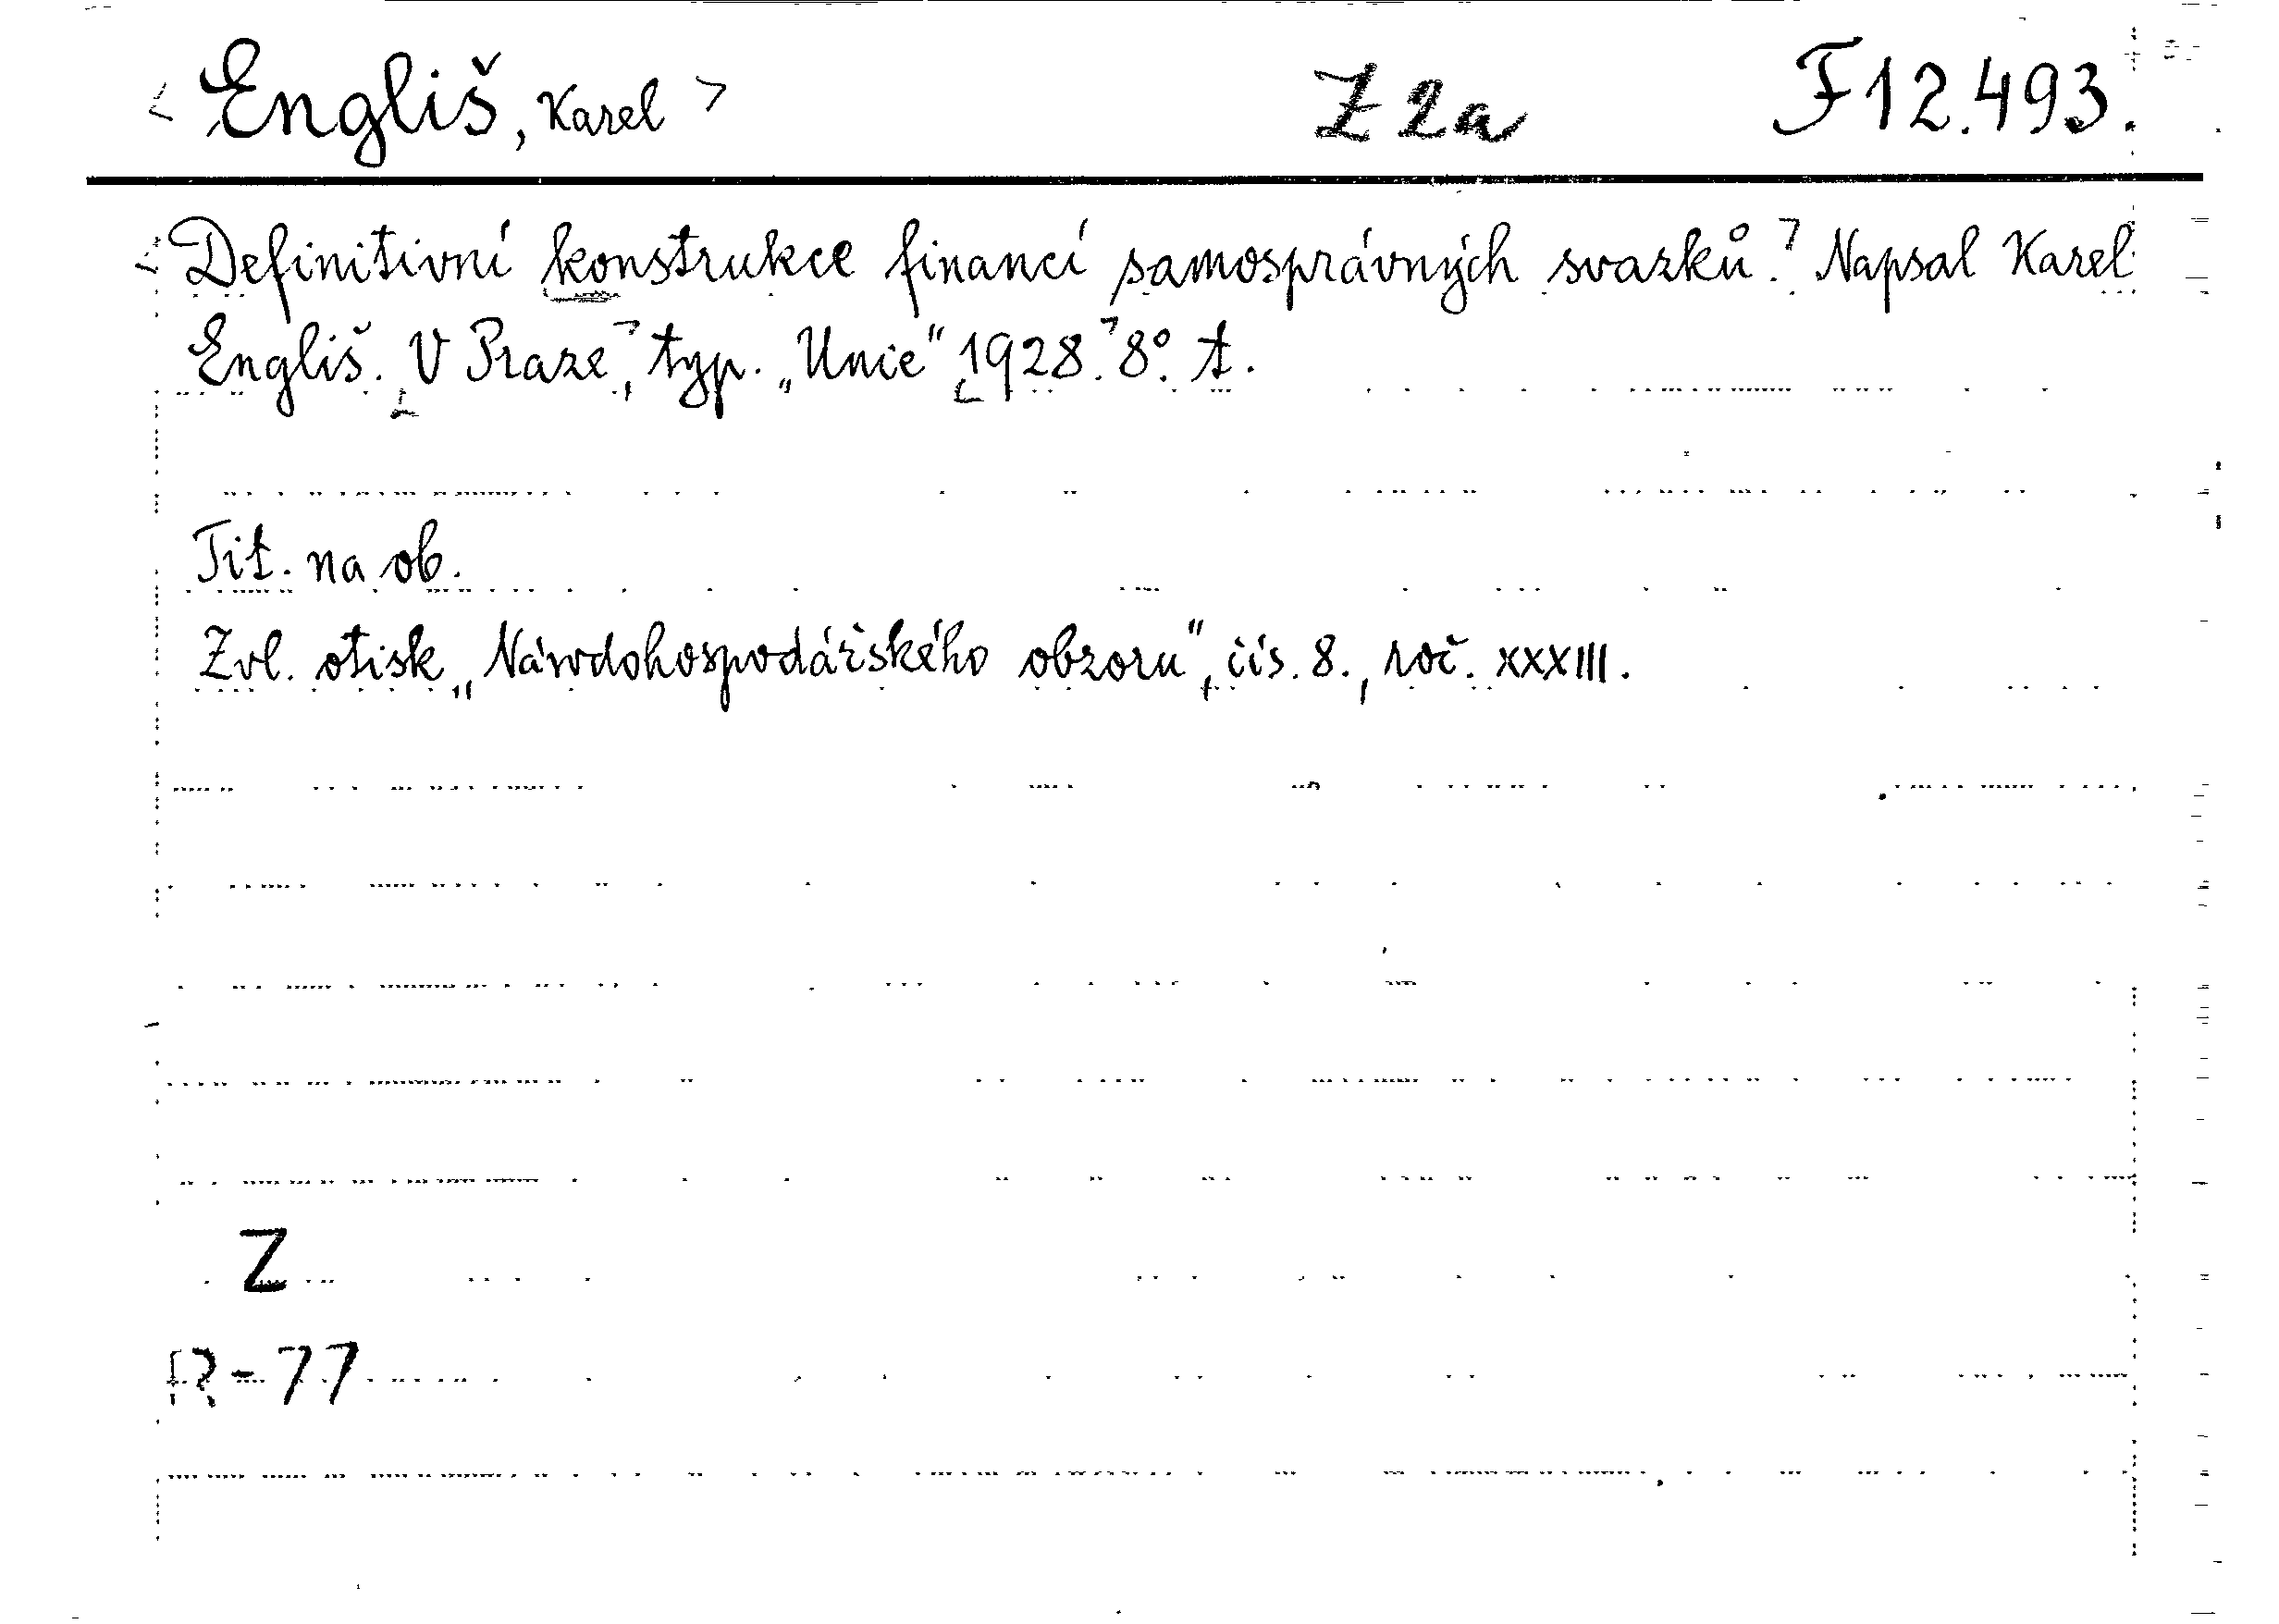 Engliš, Karel Z 2a F 12.493.
Definitivní konstrukce financí samosprávných svazků. Napsal Karel
Engliš. V Praze, typ. „Unie" 1928. 8º. t.
Tit. na ob.
Zvl. otisk „Národohospodářského obzoru", čís. 8., roč. XXXIII.
Z
R-77